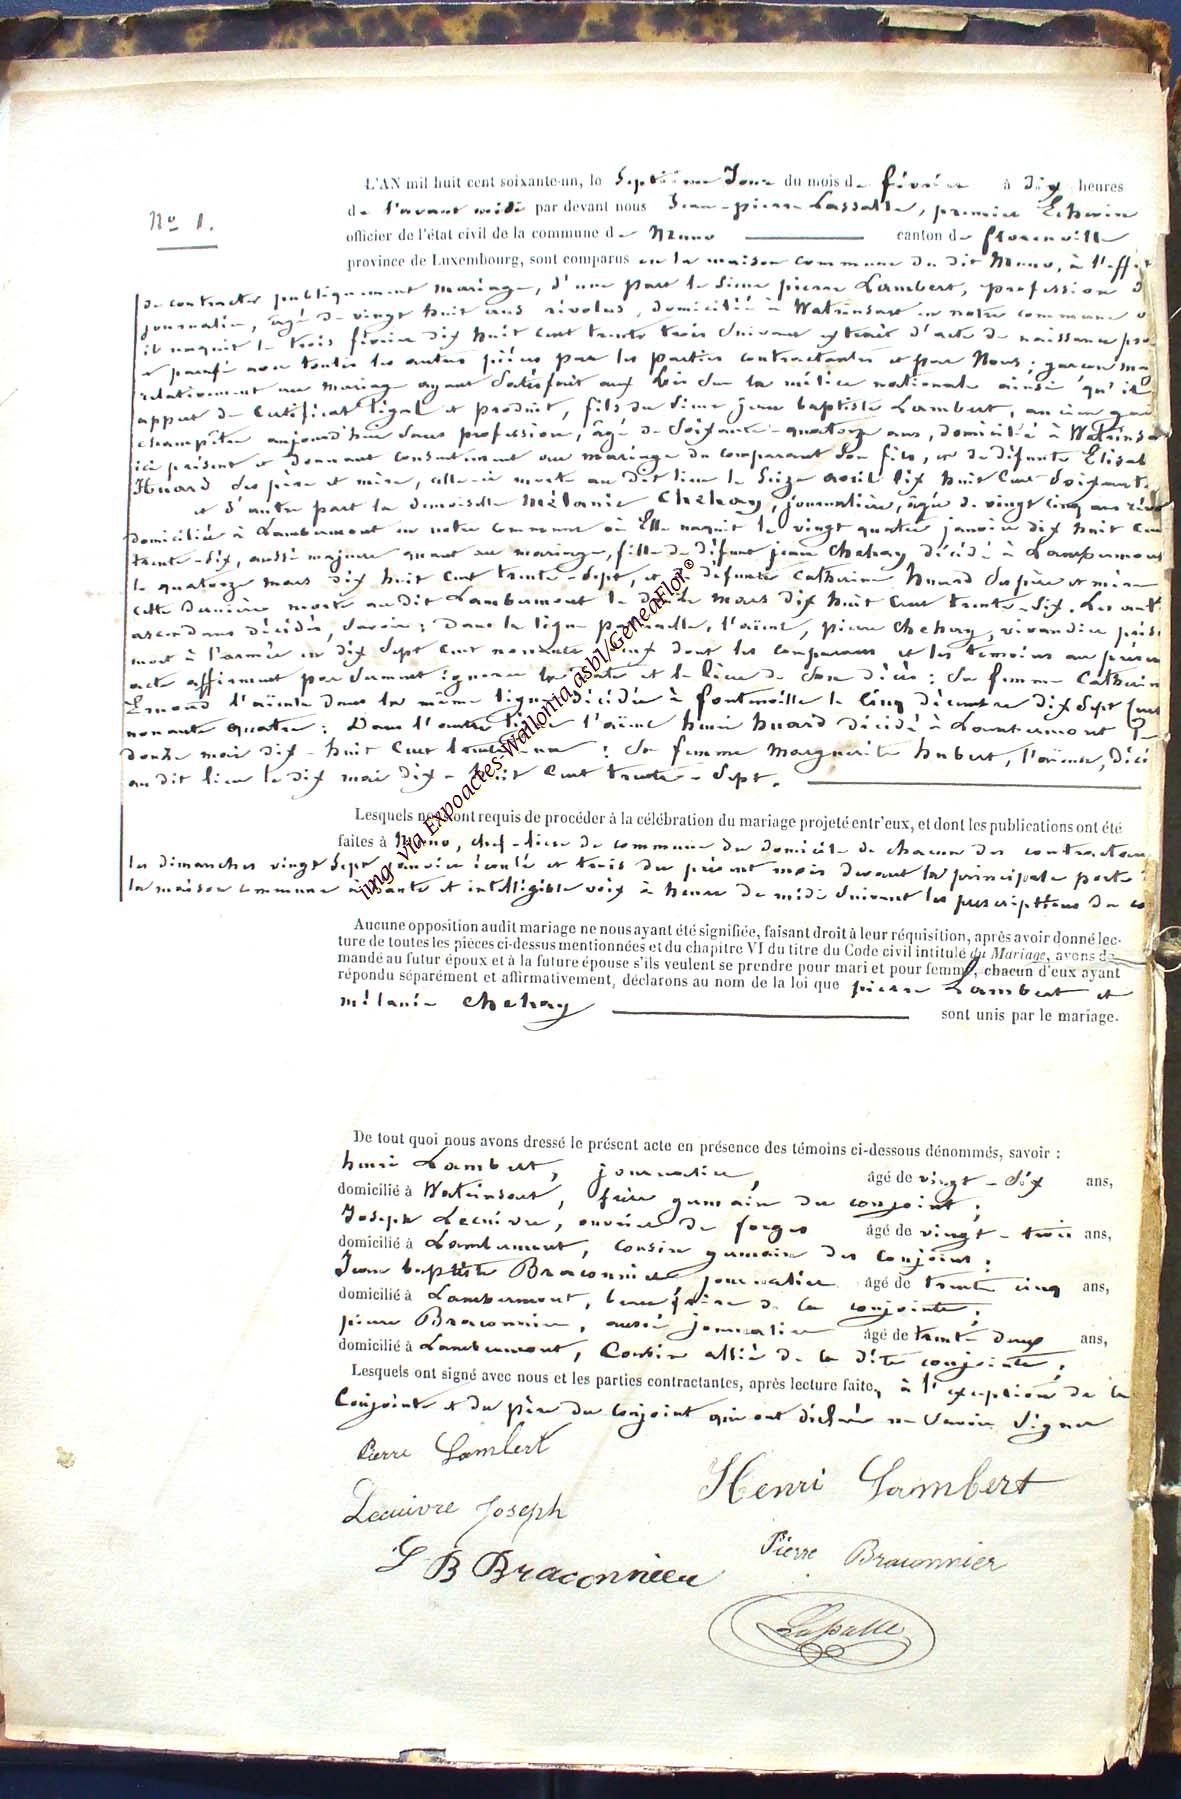 L'AN mil huit cent soixante-un, le Septième Jour du mois de février à Dix heures
de l'avant midi par devant nous Jean-pierre Lassalle, premier Echevin
N° 1.
officier de l'état civil de la commune de Muno canton de florenville
province de Luxembourg, sont comparus en la maison commune du dit Muno, à l'eff
de contracter publiquement mariage, d'une part le Sieur pierre Lambert, profession d
journalier, âgé de vingt huit ans révolus, domicilié à Watrinsart en notre commune o
il naquit le trois février dix huit cent trente trois suivant extrait d'acte de naissance pro
et parafé avec toutes les autres pièces par les parties contractantes et par Nous; garçon ma
relativement au mariage ayant satisfait aux lois sur la milice nationale ainsi qu'il
appert du Certificat légal et produit, fils du Sieur jean baptiste Lambert, ancien gar
champêtre aujourd'hui sans profession, âgé de Soixante-quatorze ans, domicilié à Watrinsa
ici présent et donnant consentement au mariage du comparant son fils, et de défunte Elisab
Huard ses père et mère, celle-ci morte au dit lieu le Seize avril dix huit Cent Soixante
et d'autre part la demoiselle Mélanie Chehay, journalière, âgée de vingt cinq ans révo
domiciliée à Lambermont en notre commune où Elle naquit le vingt quatre janvier dix huit Cen
trente-six, aussi majeure quant au mariage, fille de défunt jean Chehay décédé à Lambermont
le quatorze mars dix huit Cent trente-Sept, et de défunte Catherine huard Ses père et mère
cette dernière morte au dit Lambermont le mars dix huit Cent trente-Six. Les autr
ascendans décédés, Savoir: Dans la ligne paternelle, l'aïeul, pierre Chehay, vivandier
mort à l'armée en dix Sept Cent nonante deux dont les comparans et les témoins au présen
acte affirment par serment ignorer la date et le lieu de Son décès; Sa femme Catherin
Emond l'aïeule dans la même ligne décédée à fontenoille le Cinq décembre dix Sept Cent
nonante quatre: Dans l'autre ligne l'aïeul henri huard décédé à Lambermont le
douze mai dix-huit Cent : Sa femme Marguerite hubert, l'aïeule, Décé
au dit lieu le dix mai dix-huit Cent trente-Sept.
Lesquels nous ont requis de procéder à la célébration du mariage projeté entr'eux, et dont les publications ont été
faites à Muno, chef-lieu de commune du domicile de chacun des contractans
les dimanches vingt Sept janvier écoulé et trois du présent mois devant la principale porte
la maison commune à haute et intelligible voix à heure de midi Suivant les prescriptions du co
Aucune opposition audit mariage ne nous ayant été signifiée, faisant droit à leur réquisition, après avoir donné lec-
ture de toutes les pièces ci-dessus mentionnées et du chapitre VI du titre du Code civil intitulé du Mariage, avons de-
mandé au futur époux et à la future épouse s'ils veulent se prendre pour mari et pour femme, chacun d'eux ayant
répondu séparément et affirmativement, déclarons au nom de la loi que pierre Lambert et
mélanie Chehay sont unis par le mariage.
De tout quoi nous avons dressé le présent acte en présence des témoins ci-dessous dénommés, savoir :
henri Lambert, journalier, âgé de vingt-Six ans,
domicilié à Watrinsart, frère germain du conjoint;
Joseph Lecuivre, ouvrier de forges âgé de vingt-trois ans,
domicilié à Lambermont, cousin germain des conjoins;
Jean baptiste Braconnier journalier âgé de trente cinq ans,
domicilié à Lambermont, beau frère de la conjointe;
pierre Braconnier, aussi journalier âgé de trente deux ans,
domicilié à Lambermont, Cousin allié de la dite conjointe;
Lesquels ont signé avec nous et les parties contractantes, après lecture faite, à l'exception de la
Conjointe et du père du conjoint qui ont déclaré ne savoir Signer
Pierre Lambert
Henri Lambert
Lecuivre Joseph
Pierre Braconnier
J B Braconnier
Lassalle
img via Expoactes-Wallonia asbl/GeneaFlor®